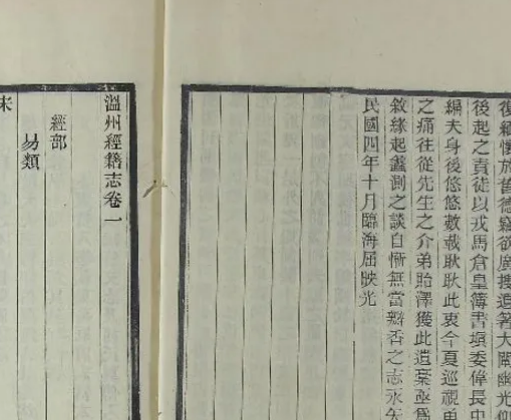 復續懷於舊德竊欲廣搜遺著大闡幽光
後起之責徒以戎馬倉皇簿書塡委偉長中
編夫身後悠悠數載耿耿此衷今夏巡視
之痛往從先生之介弟貽澤獲此遺稾亟爲
敘緣起蠡測之談自慚無當瓣香之志永矢
民國四年十月臨海屈映光
溫州經籍志卷一
經部
易類
宋